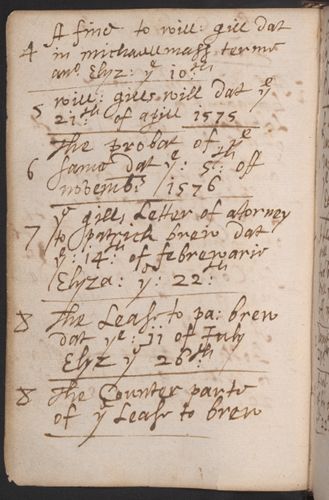 4 A fine to will: gill dat
in michaellmass terme
an͏o. Elyz: yᵉ 10:ᵗʰ
5 will: gills will dat yᵉ
21:ᵗʰ of aprill 1575
The probat of yᵉ
6 same dat yᵉ: 5:ᵗʰ off
novemb: 1576
yᵉ gills Letter of atorney
7 to patrick brew dat
yᵉ: 14:ᵗʰ of febrewarie
Elyza: yᵉ: 22:ᵗʰ
8 The Lease to pa: brew
dat yᵉ: 11 of July
Elyz yᵉ 26:ᵗʰ
8 The Counter parte
of yᵉ Lease to brew